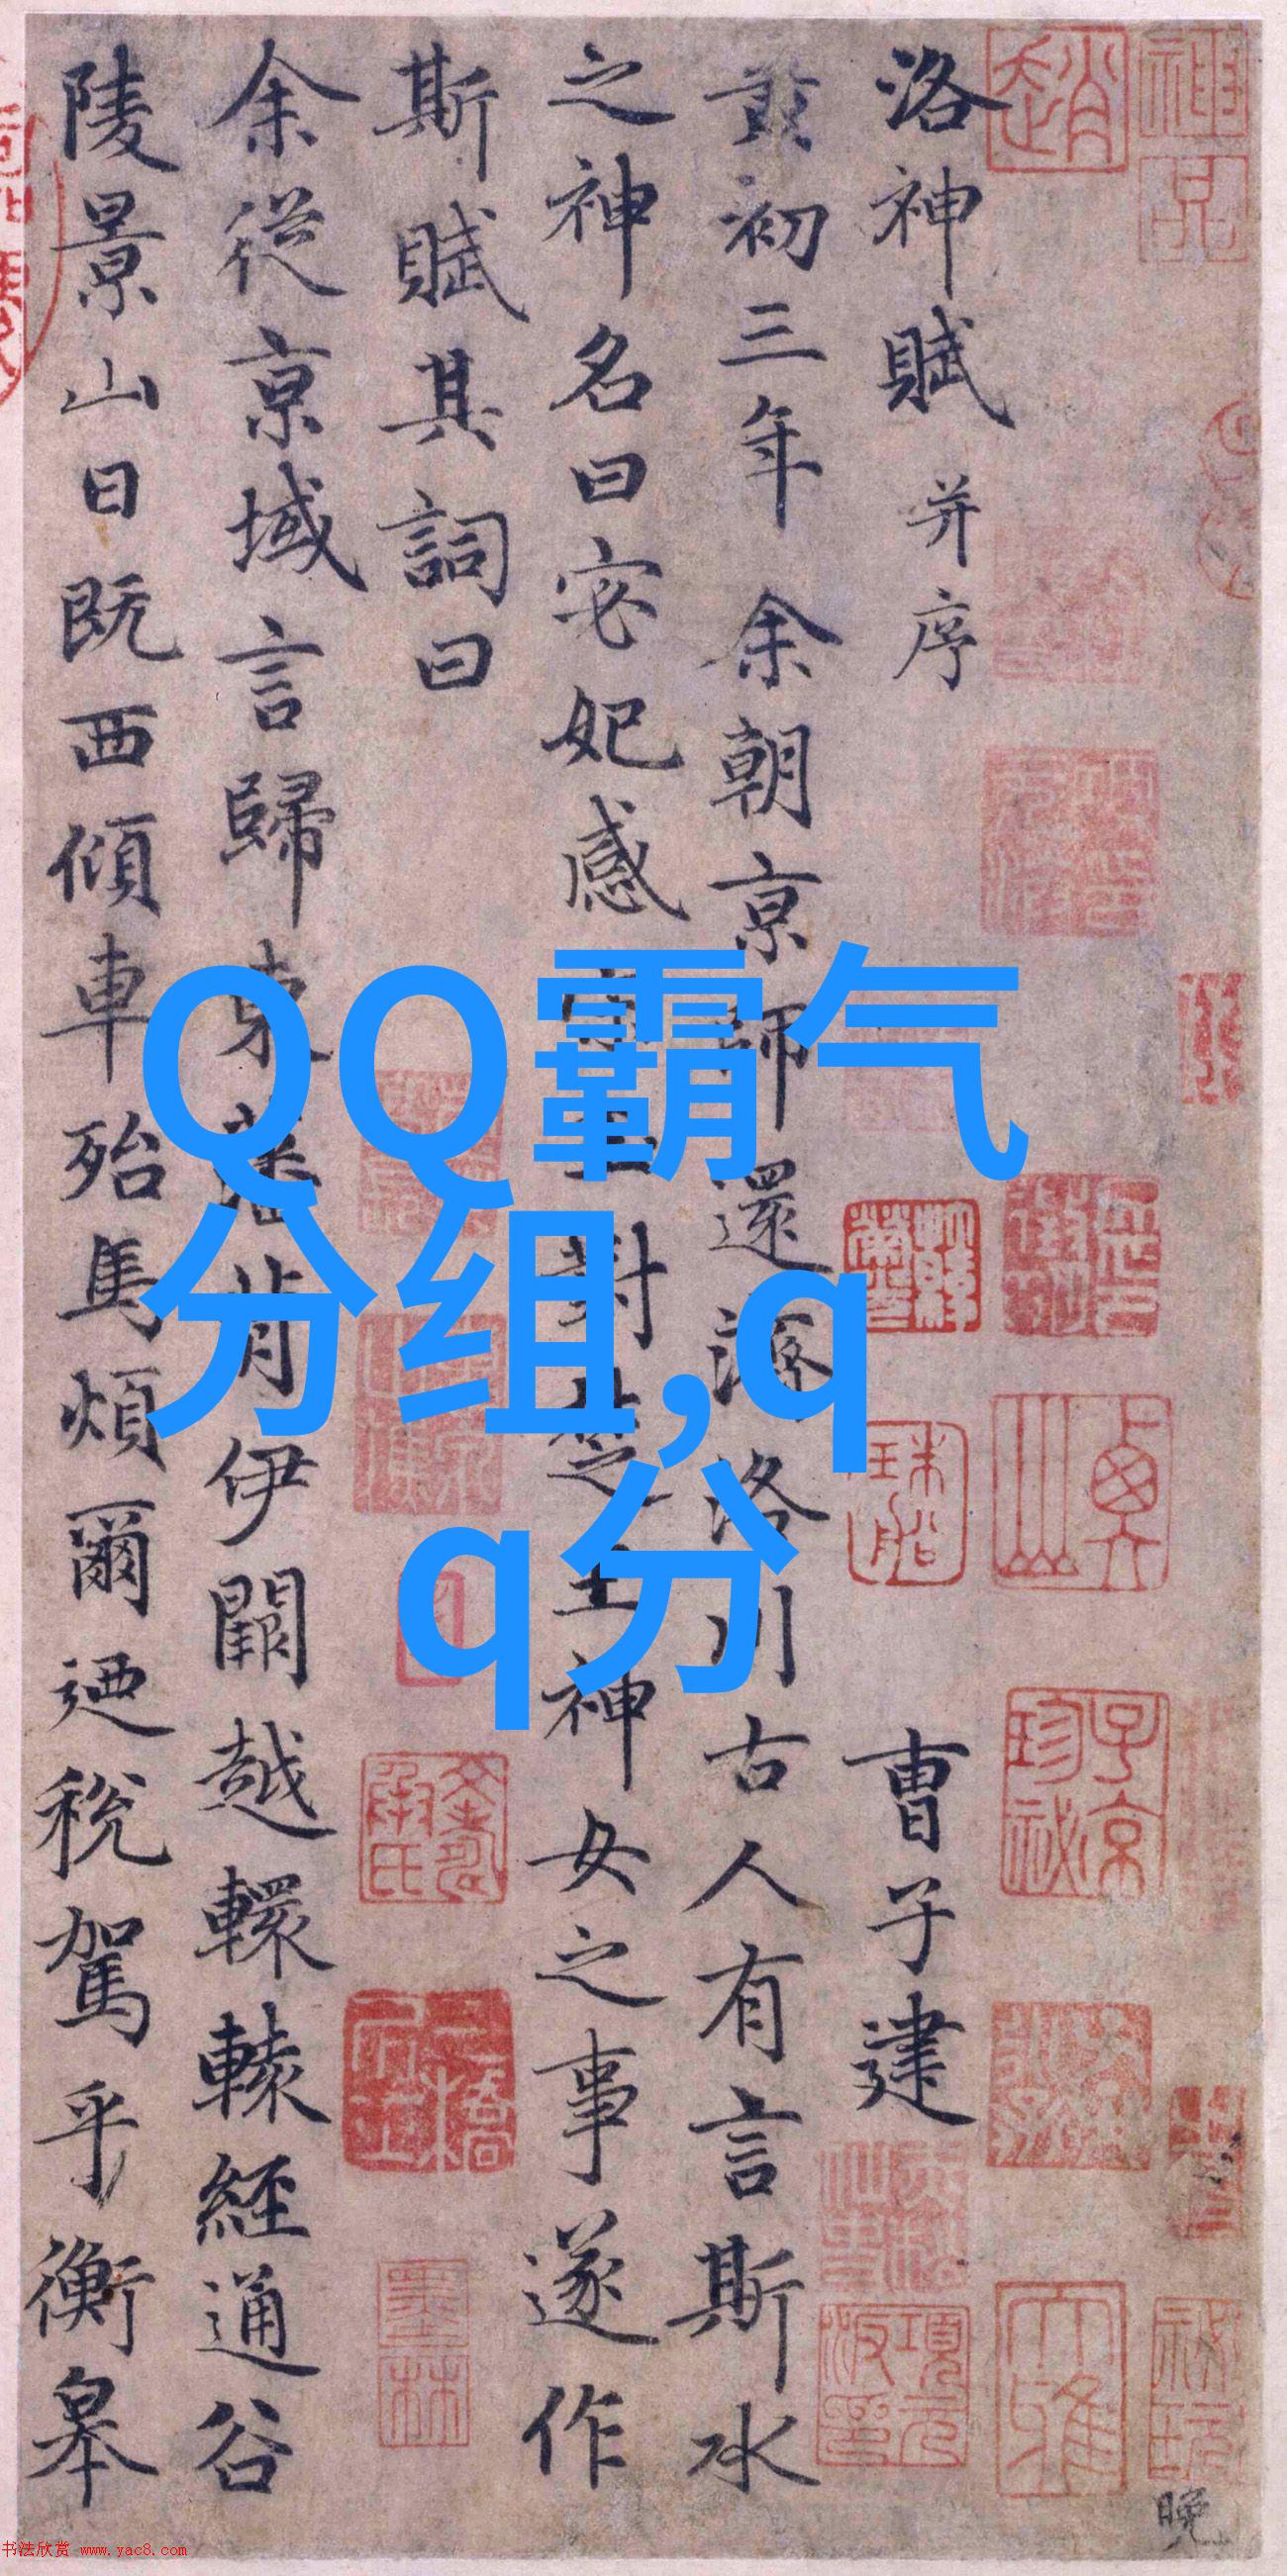 QQ霸气
分组,q
q分
洛神賦 并序 曹子建
黄初三年余朝京師還濟洛川古人有言斯水
之神名曰宓妃感宋玉對楚王神女之事遂作
斯賦其詞曰
余從京域言歸東藩背伊闕越轘轅經通谷
陵景山日既西傾車殆馬煩爾迺稅駕乎衡皋
趙
神品
子京珍祕
大雅
項元汴印
墨林
晚
书法欣赏 www.yac8.com